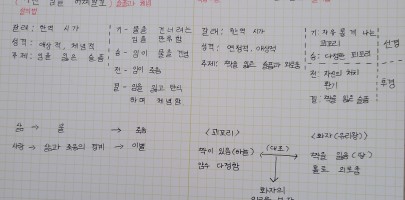 갈래: 한역 시가
성격: 애상적, 체념적
주제: 임을 잃은 슬픔
기 - 물을 건너려는 임을 만류함
승 - 임이 물을 건넘
전 - 임이 죽음
결 - 임을 잃고 탄식하며 체념함
갈래: 한역 시가
성격: 애상적
기: 자유롭게 나는 꾀꼬리
승: 다정한 꾀꼬리
전: 자신의 처지 환기
결: 짝을 잃은 슬픔
선경
후정
삶 → 물 → 죽음
사랑 → 삶과 죽음의 경계 → 이별
<꾀꼬리>
짝이 있음(하늘)
암수 다정함
(대조)
화자(유리왕)
짝을 잃음(땅)
홀로 외로움
화자의